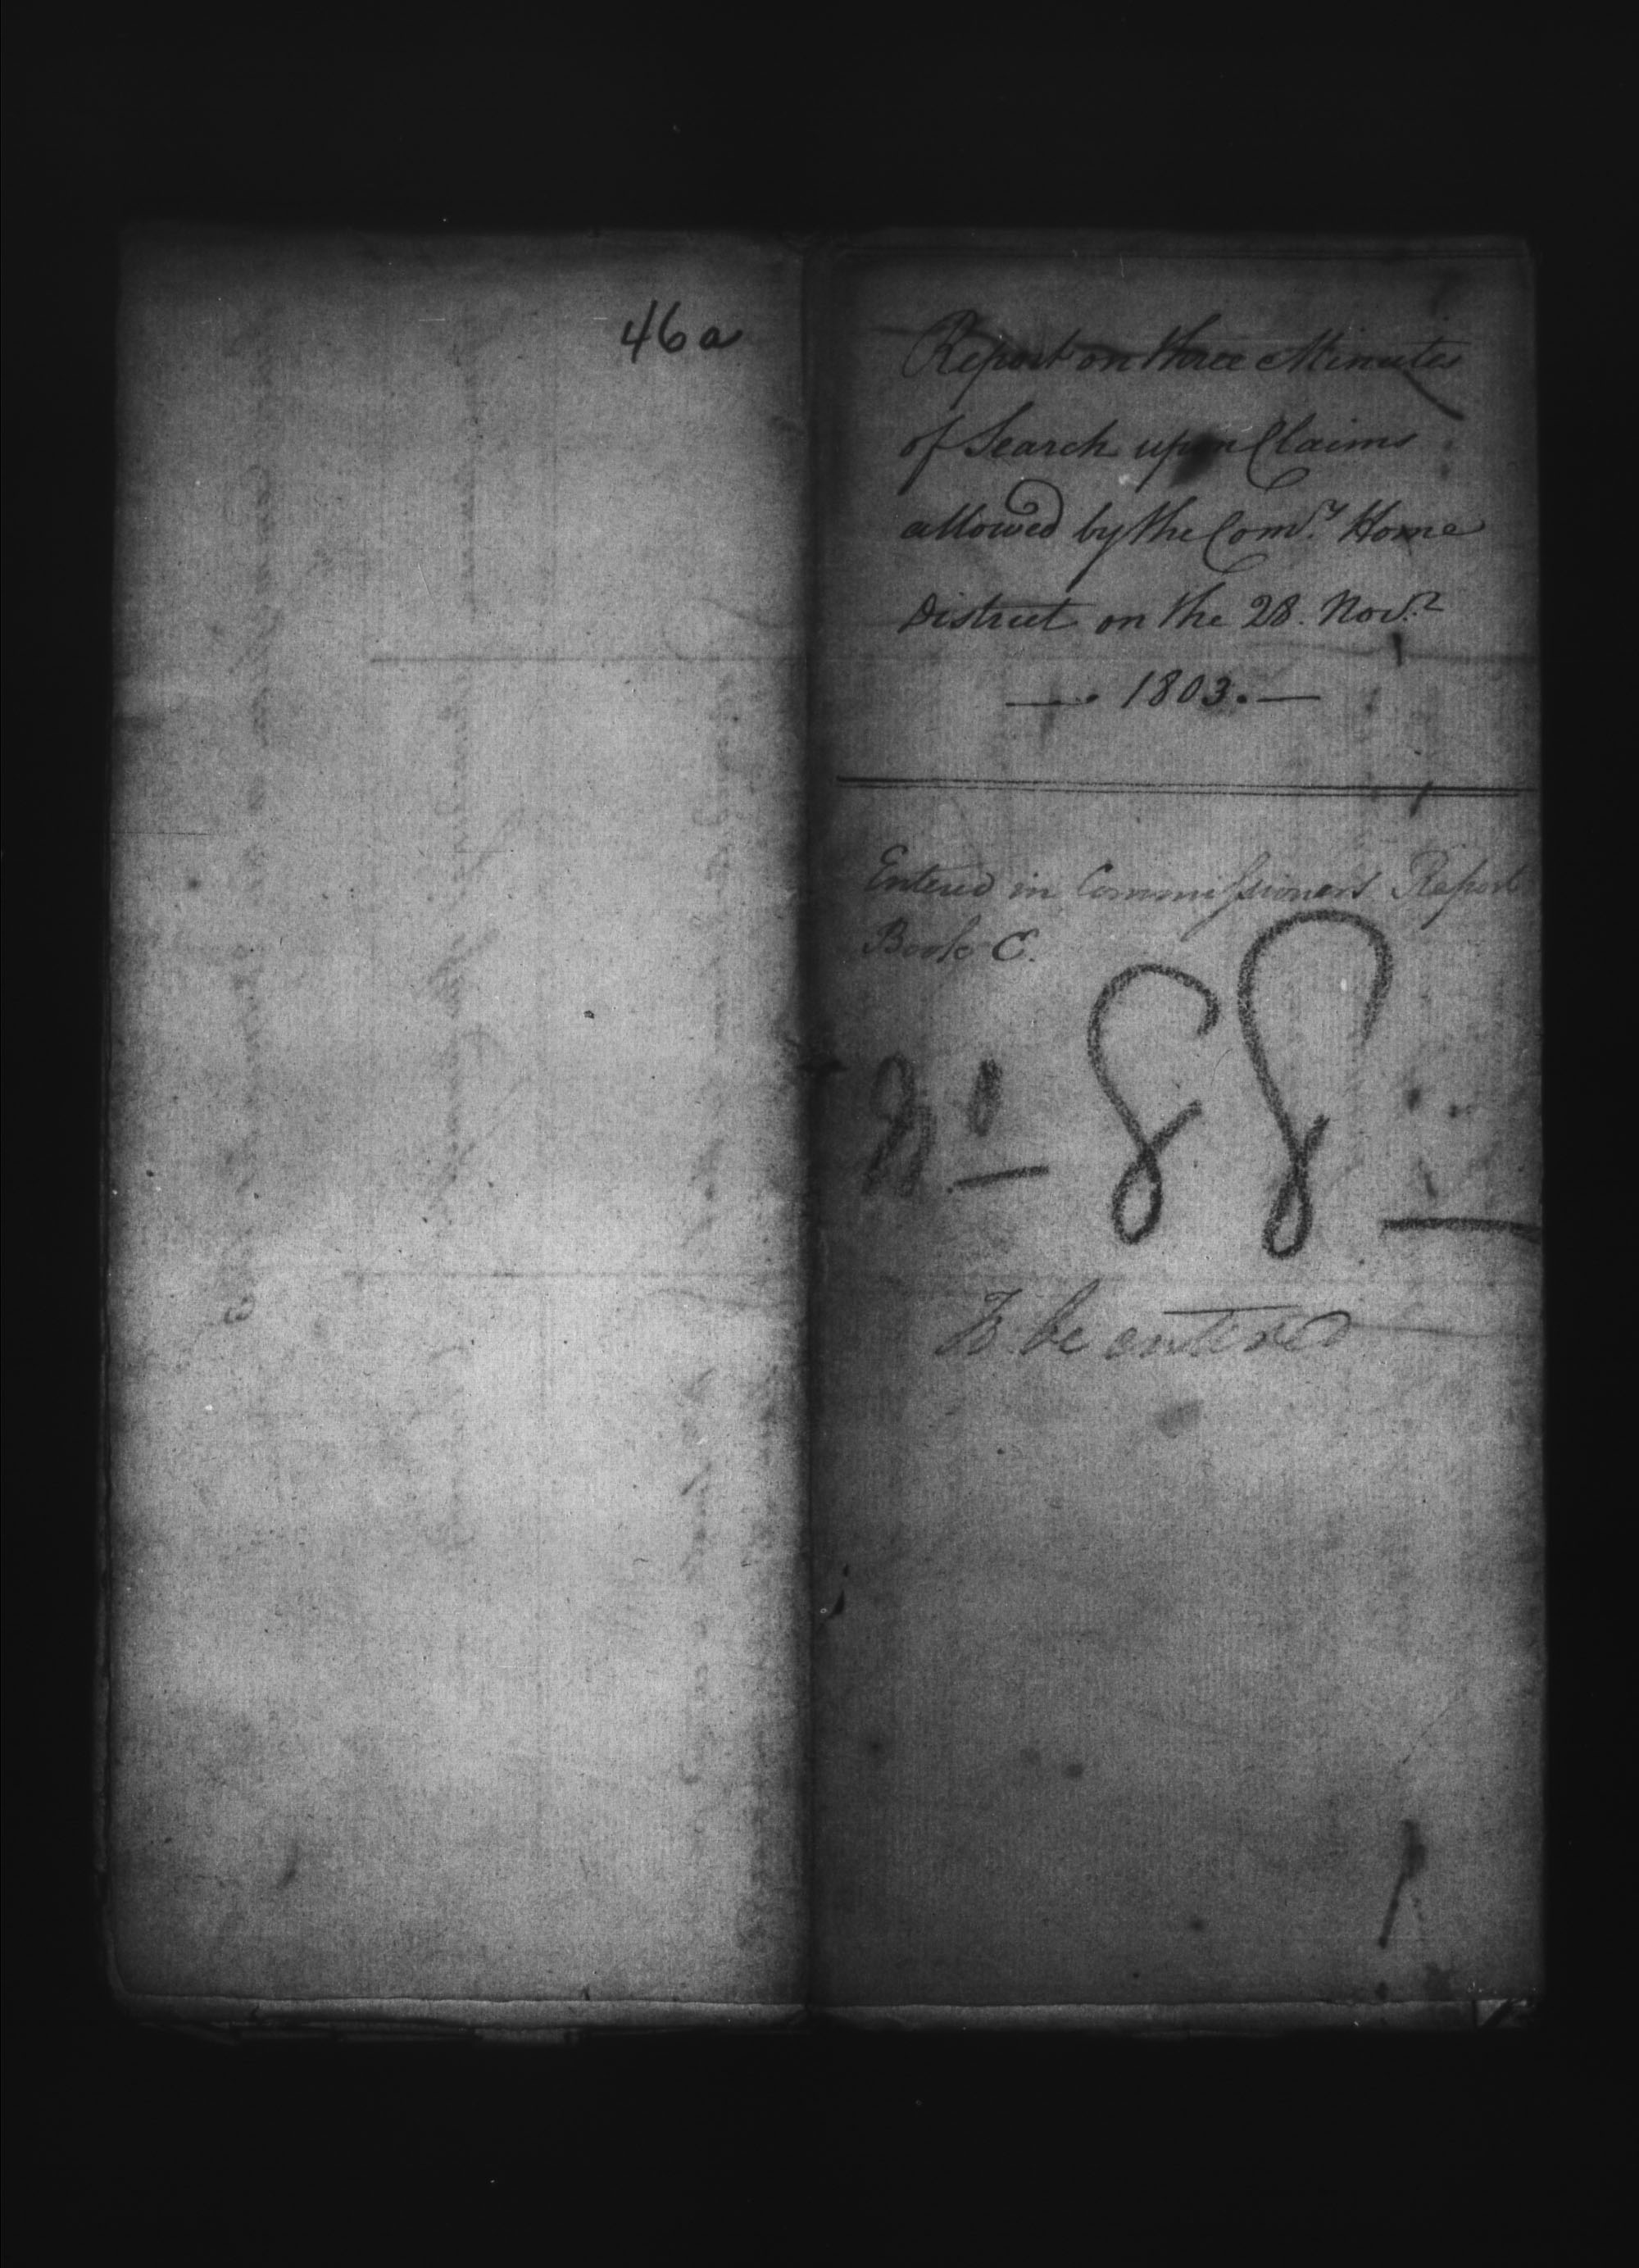 46a
Report on three Minutes
of Search upon Claims
allowed by the Com.rs Home
District on the 28. Nov.r
— 1803. —
Entered in Commissioners Report
Book C.
No 88
To be entered